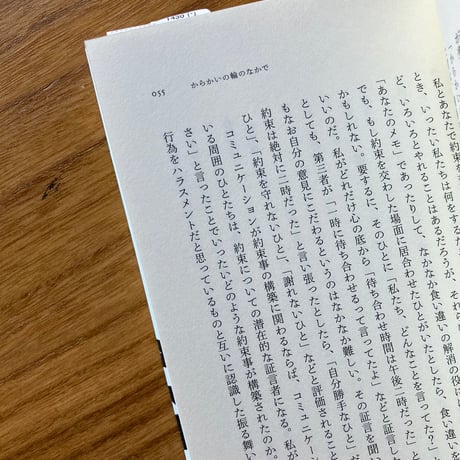 からかいの輪のなかで
055
私とあなたで約束を
とき、いったい私たちは何をするだ
ど、いろいろとやれることはあるだろうが、それら
「あなたのメモ」であったりして、なかなか食い違いの解消の役に
でも、もし約束を交わした場面に居合わせたひとがいたとしたら、食い違い
かもしれない。要するに、そのひとに「私たち、どんなことを言ってた？」
いいのだ。私がどれだけ心の底から「待ち合わせ時間は午後二時だった」と
としても、第三者が「一時に待ち合わせるって言ってたよ」などと証言し
もなお自分の意見にこだわるというのはなかなか難しい。その証言を聞い
約束は絶対に二時だった」と言い張ったとしたら、「自分勝手なひとだ」
ひと」、「約束を守れないひと」、「謝れないひと」などと評価されること
コミュニケーションが約束事の構築に関わるならば、コミュニケー
いる周囲のひとたちは、約束についての潜在的な証言者になる。私が
さい」と言ったことでいったいどのような約束事が構築されたのか。
行為をハラスメントだと思っているものと互いに認識した振る舞い